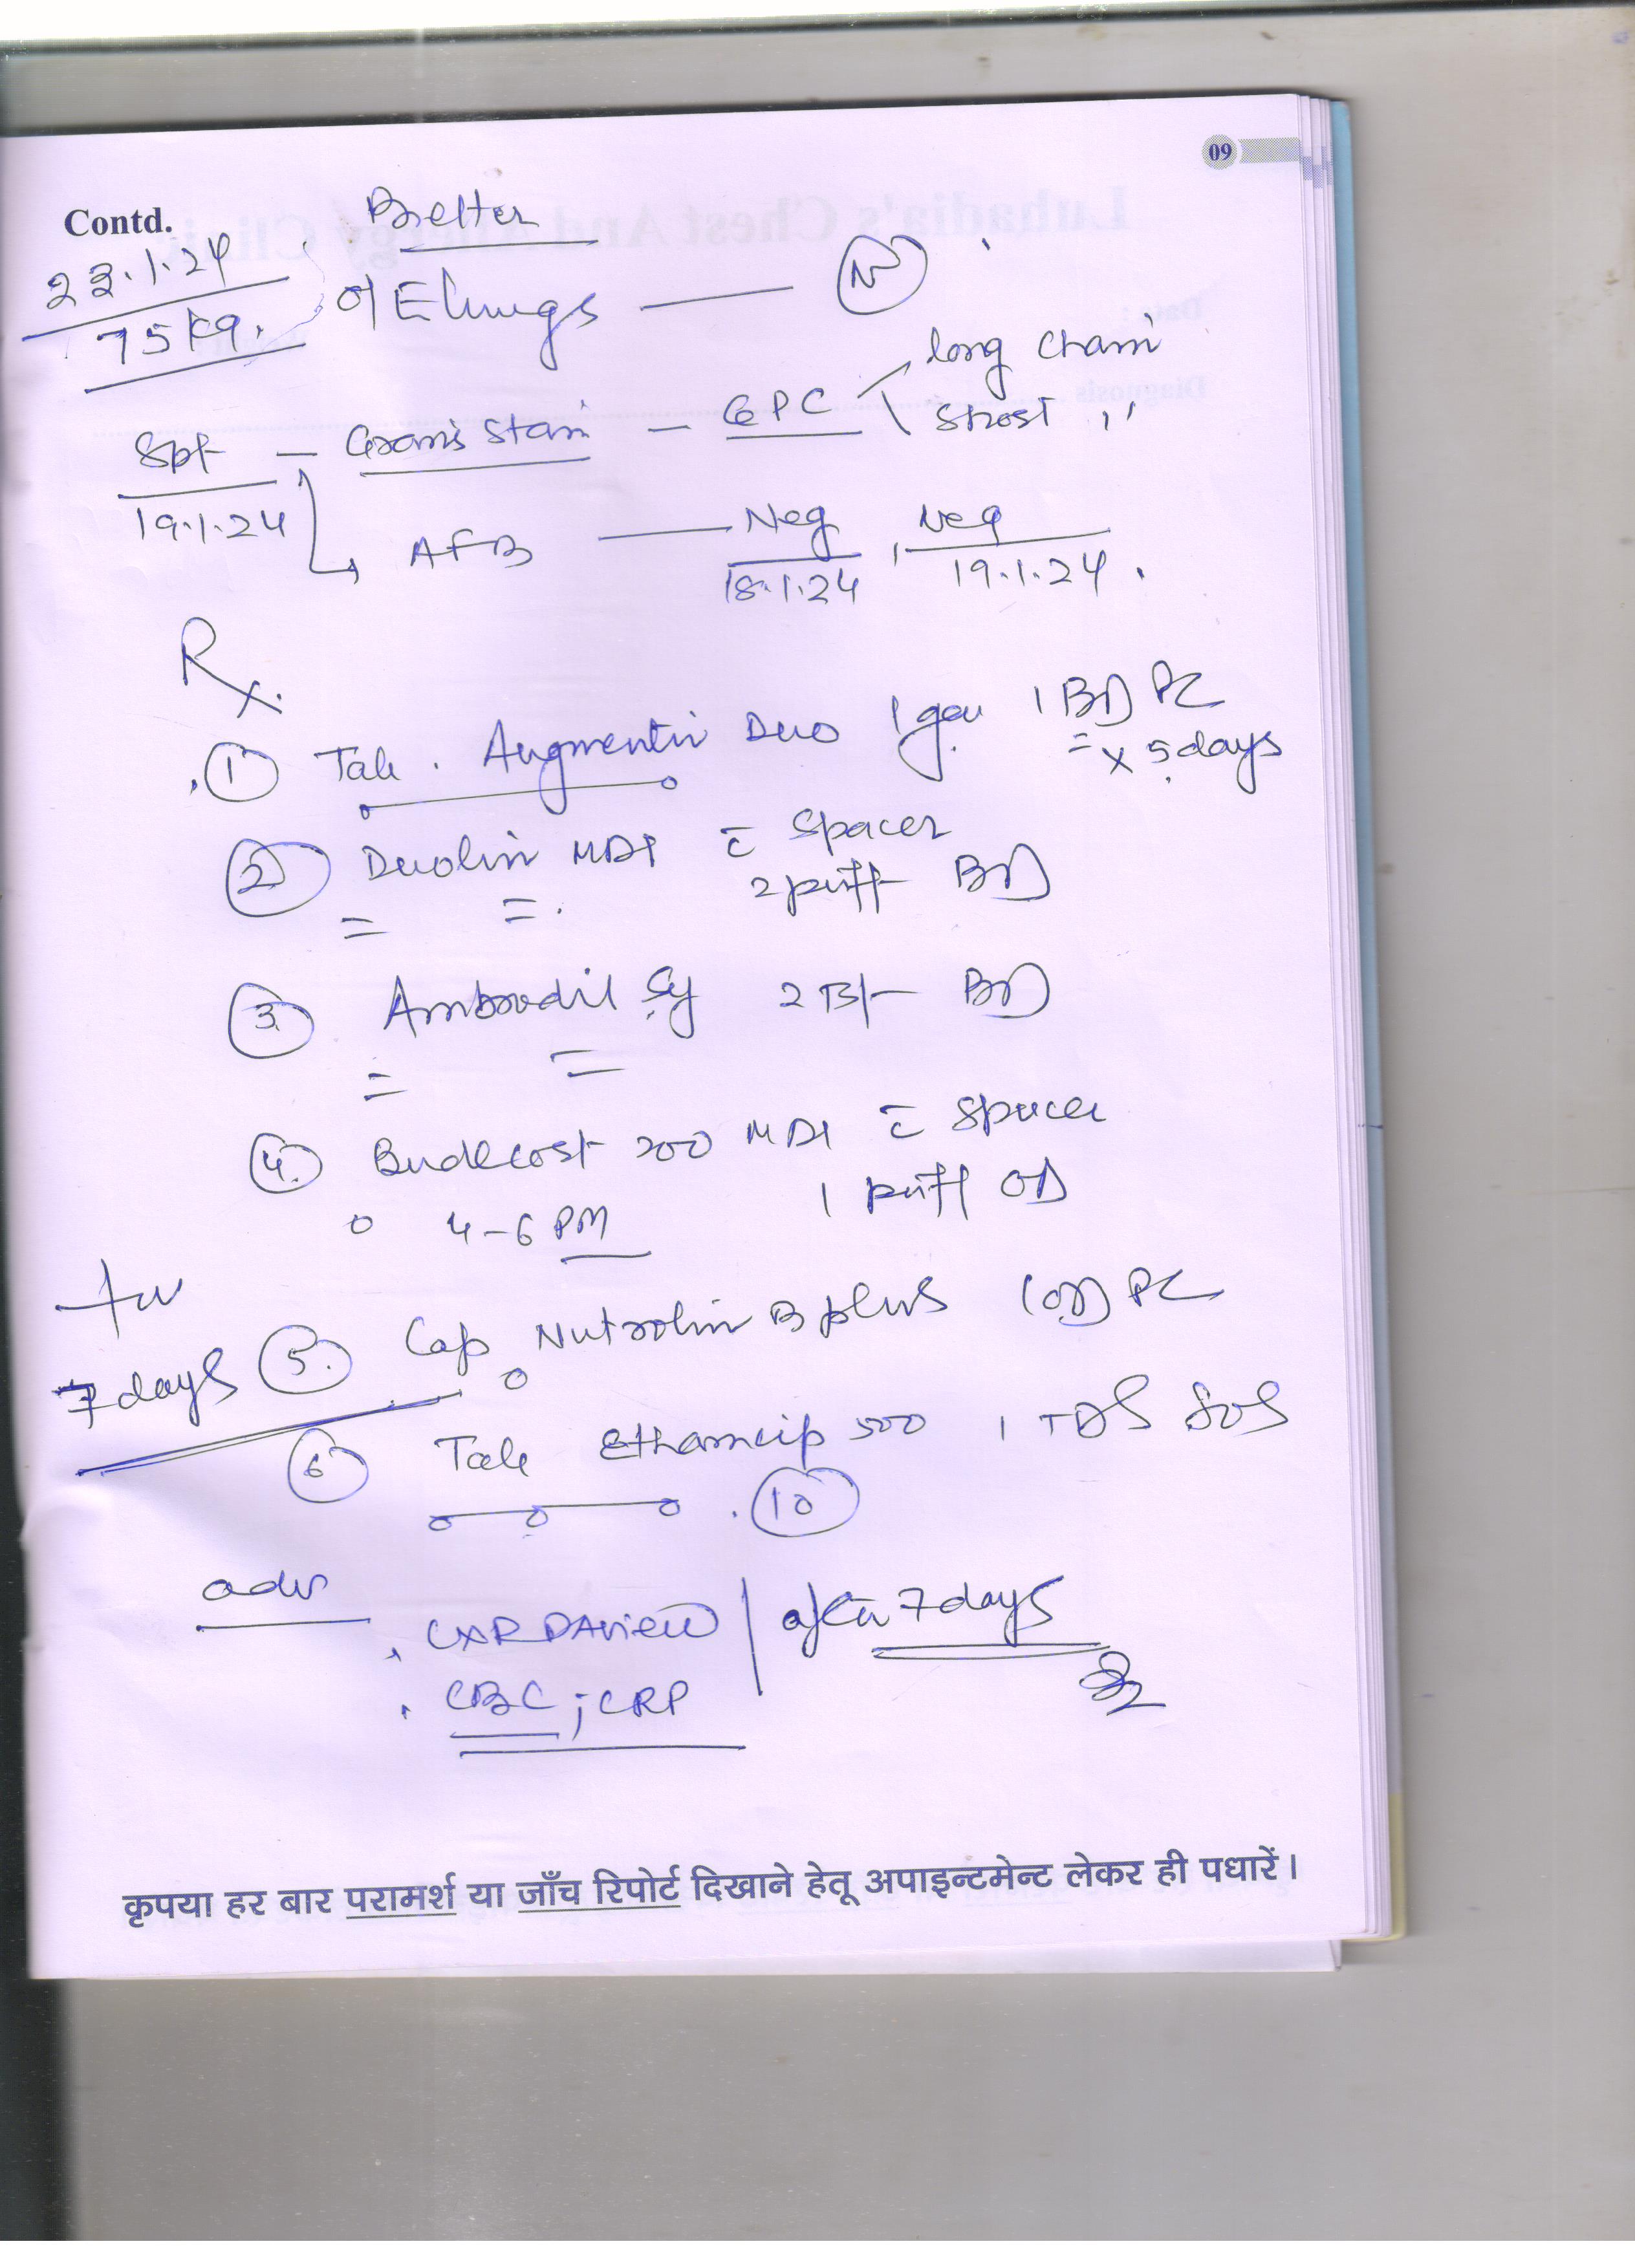 09
Contd.
Better
23.1.24
75 kg.
O/E lungs — N
Spt — Gram's Stain — GPC
long chain
Short ,,
19.1.24
AFB — Neg , Neg
18.1.24 19.1.24.
Rx.
1 Tab. Augmentin Duo 1gm 1 BD PC
x 5 days
2 Duolin MDI c̄ spacer
2 puff BD
3. Ambrodil Sy 2 BD
4. Budecost 200 MDI c̄ spacer
1 puff OD
4-6 PM
7 days
5. Cap Nutrolin B plus 1 OD PC
6 Tab Ethamcip 500 1 TDS SOS
10
adv
CXR PA view
after 7 days
CBC ; CRP
कृपया हर बार परामर्श या जाँच रिपोर्ट दिखाने हेतू अपाइन्टमेन्ट लेकर ही पधारें।